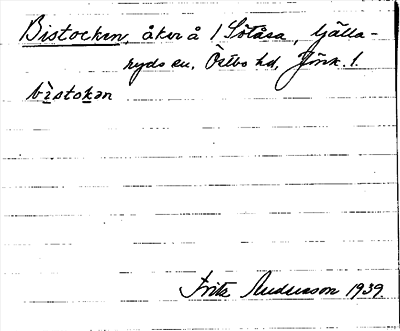 Bistocken, åker å 1 Sötåsa, Gälla-
ryds sn, Östbo hd, Jönk. l.
bìstokən
Fritz Andersson 1939.